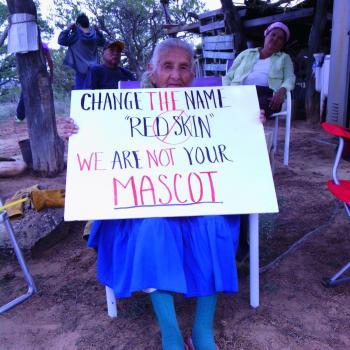 CHANGE THE NAME
"REDSKIN"
WE ARE NOT YOUR
MASCOT